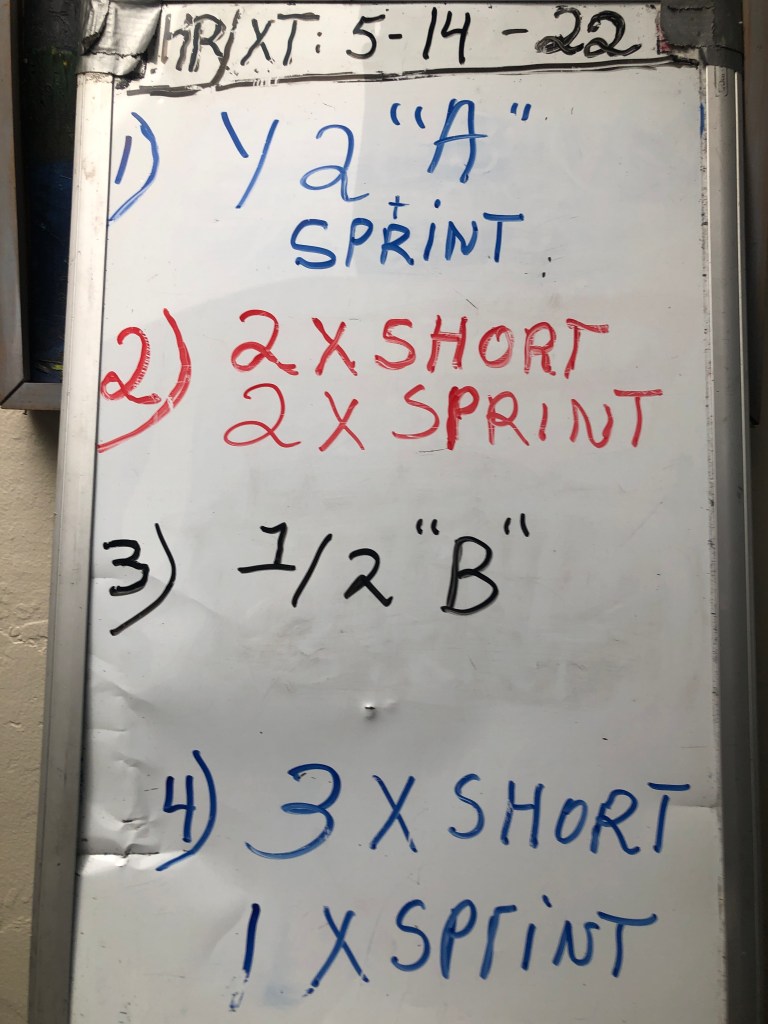 HR/XT: 5-14-22
1) 1/2 "A"
+
SPRINT
2) 2 X SHORT
2 X SPRINT
3) 1/2 "B"
4) 3 X SHORT
1 X SPriNT